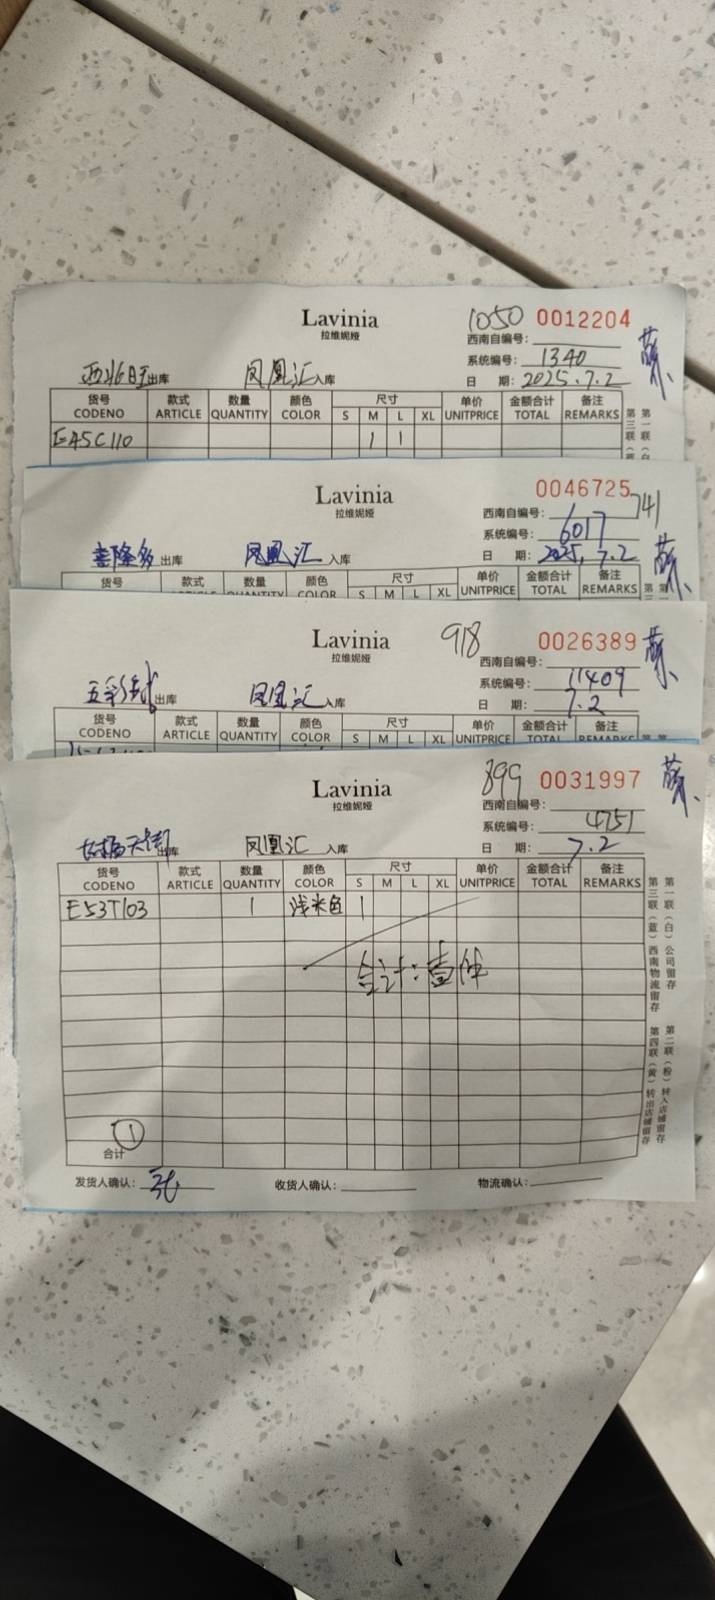 Lavinia 1050 0012204
拉维妮娅 西南自编号:
系统编号: 1340
出库 凤凰汇入库 日 期: 2025.7.2
货号 款式 数量 颜色 尺寸 单价 金额合计 备注
CODENO ARTICLE QUANTITY COLOR S M L XL UNITPRICE TOTAL REMARKS
E45C110 1 1
第一联(白)
第三联(蓝)
Lavinia 0046725
拉维妮娅 西南自编号: 741
系统编号: 6017
喜隆多出库 凤凰汇入库 日 期: 2025.7.2
货号 款式 数量 颜色 尺寸 单价 金额合计 备注
QUANTITY COLOR S M L XL UNITPRICE TOTAL REMARKS
Lavinia 918 0026389
拉维妮娅 西南自编号:
系统编号: 11409
五彩城出库 凤凰汇入库 日 期: 7.2
货号 款式 数量 颜色 尺寸 单价 金额合计 备注
CODENO ARTICLE QUANTITY COLOR S M L XL UNITPRICE TOTAL REMARKS
Lavinia 899 0031997
拉维妮娅 西南自编号:
系统编号: 4751
长楹天街出库 凤凰汇入库 日 期: 7.2
货号 款式 数量 颜色 尺寸 单价 金额合计 备注
CODENO ARTICLE QUANTITY COLOR S M L XL UNITPRICE TOTAL REMARKS
E53T103 1 浅米色 1
合计:壹件
合计 1
第一联(白)公司留存
第三联(蓝)西南物流留存
第二联(粉)转入店铺留存
第四联(黄)转出店铺留存
发货人确认: 收货人确认: 物流确认: